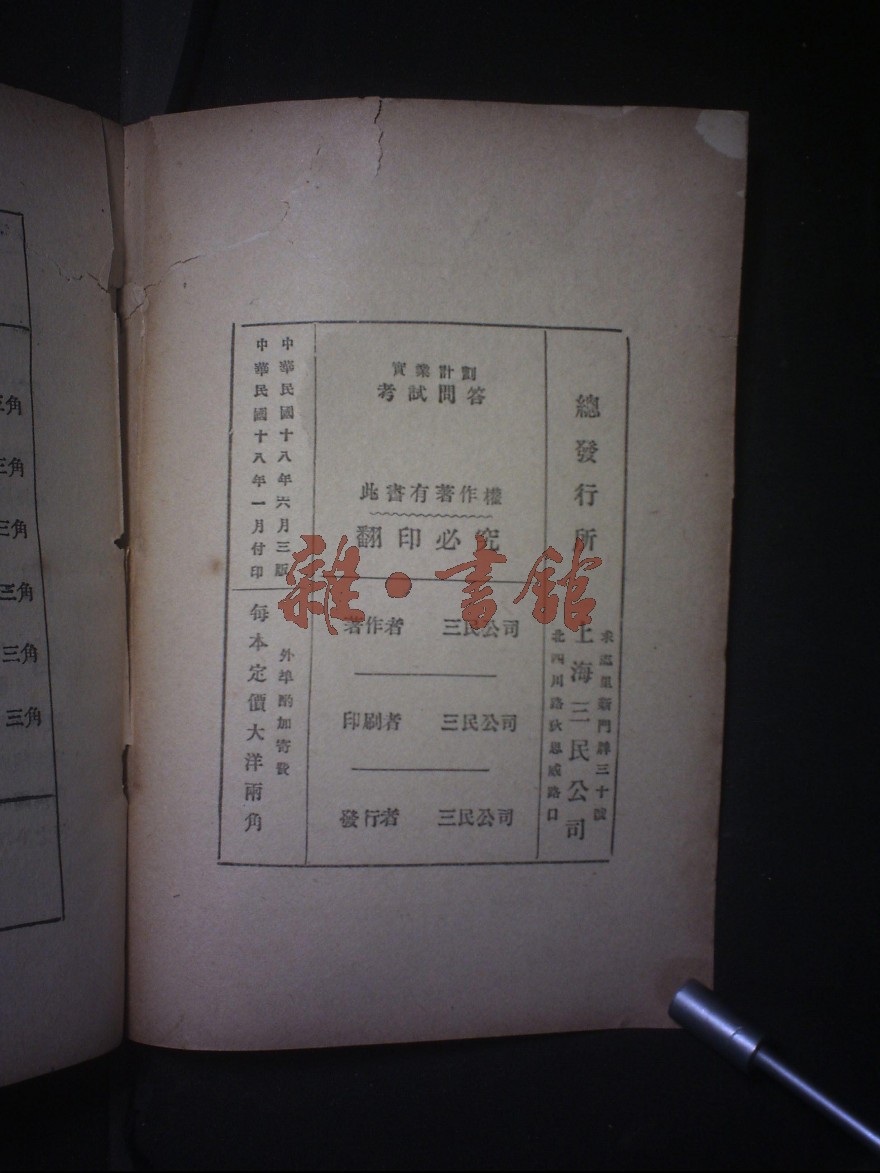 總發行所
里新門牌三十號
上海三民公司
北四川路狄思威路口
實業計劃
考試問答
此書有著作權
翻印必究
著作者 三民公司
印刷者 三民公司
發行者 三民公司
中華民國十八年六月三版
中華民國十八年一月付印
外埠酌加寄費
每本定價大洋兩角
三角
三角
三角
三角
三角
三角
雜·書館